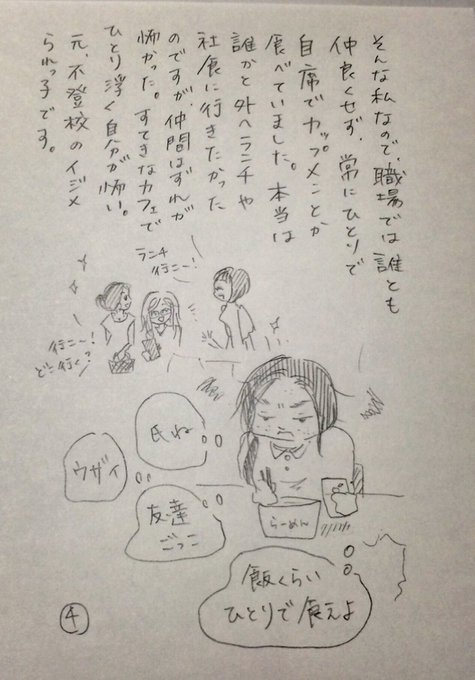 そんな私なので、職場では誰とも
仲良くせず、常にひとりで
自席でカップメンとか
食べていました。本当は
誰かと外へランチや
社食に行きたかった
のですが、仲間はずれが
怖かった。すてきなカフェで
ひとり浮く自分が怖い。
元、不登校のイジメ
られっ子です。
ランチ
行こー！
行こー！
どこ行く？
氏ね
ウザイ
友達
ごっこ
らーめん
飯くらい
ひとりで食えよ
4